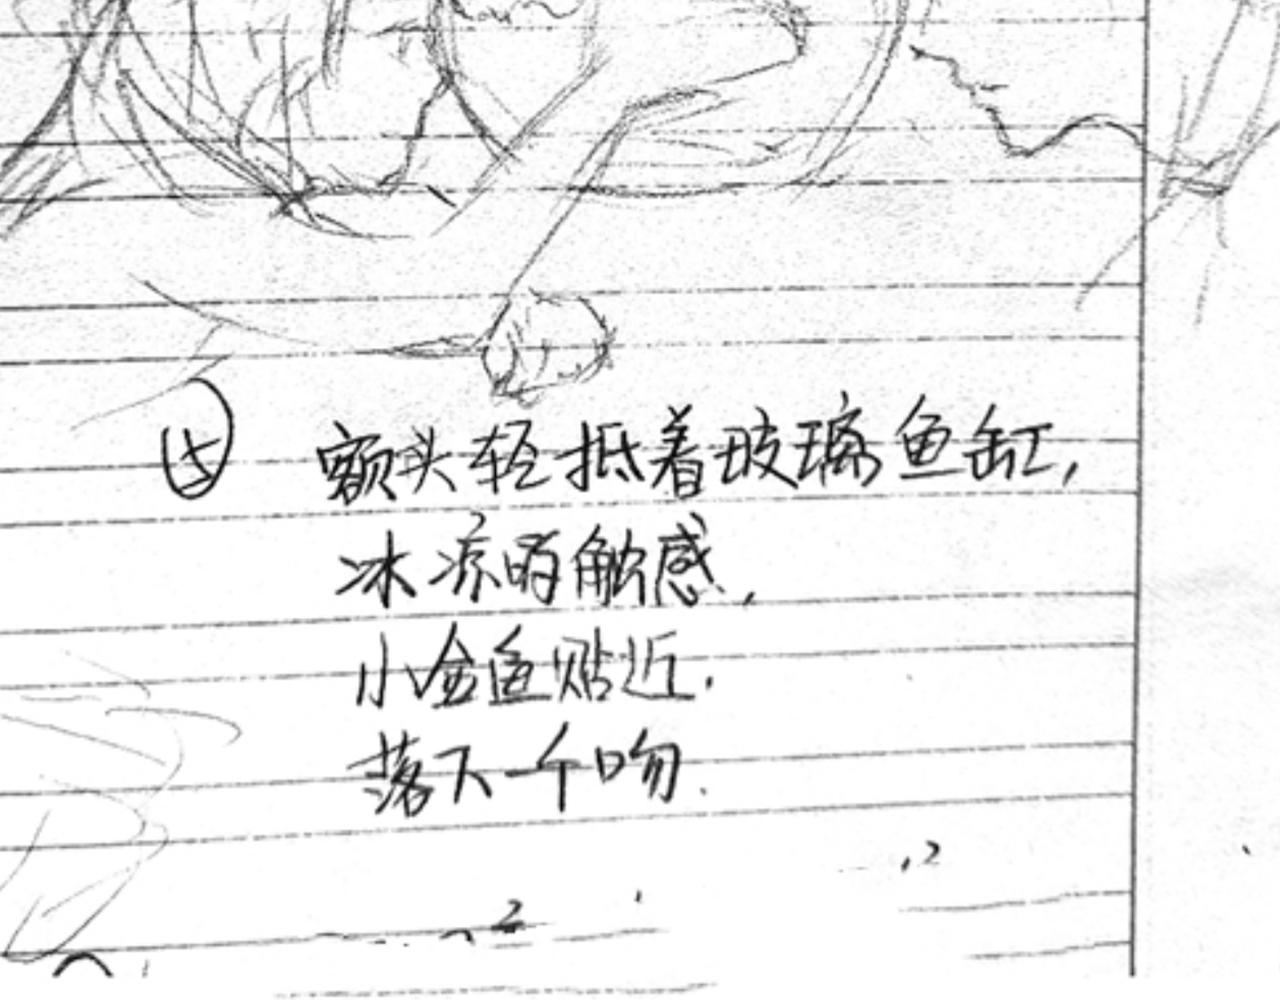 ⑤ 额头轻抵着玻璃鱼缸,
冰凉的触感,
小金鱼贴近.
落下一个吻.